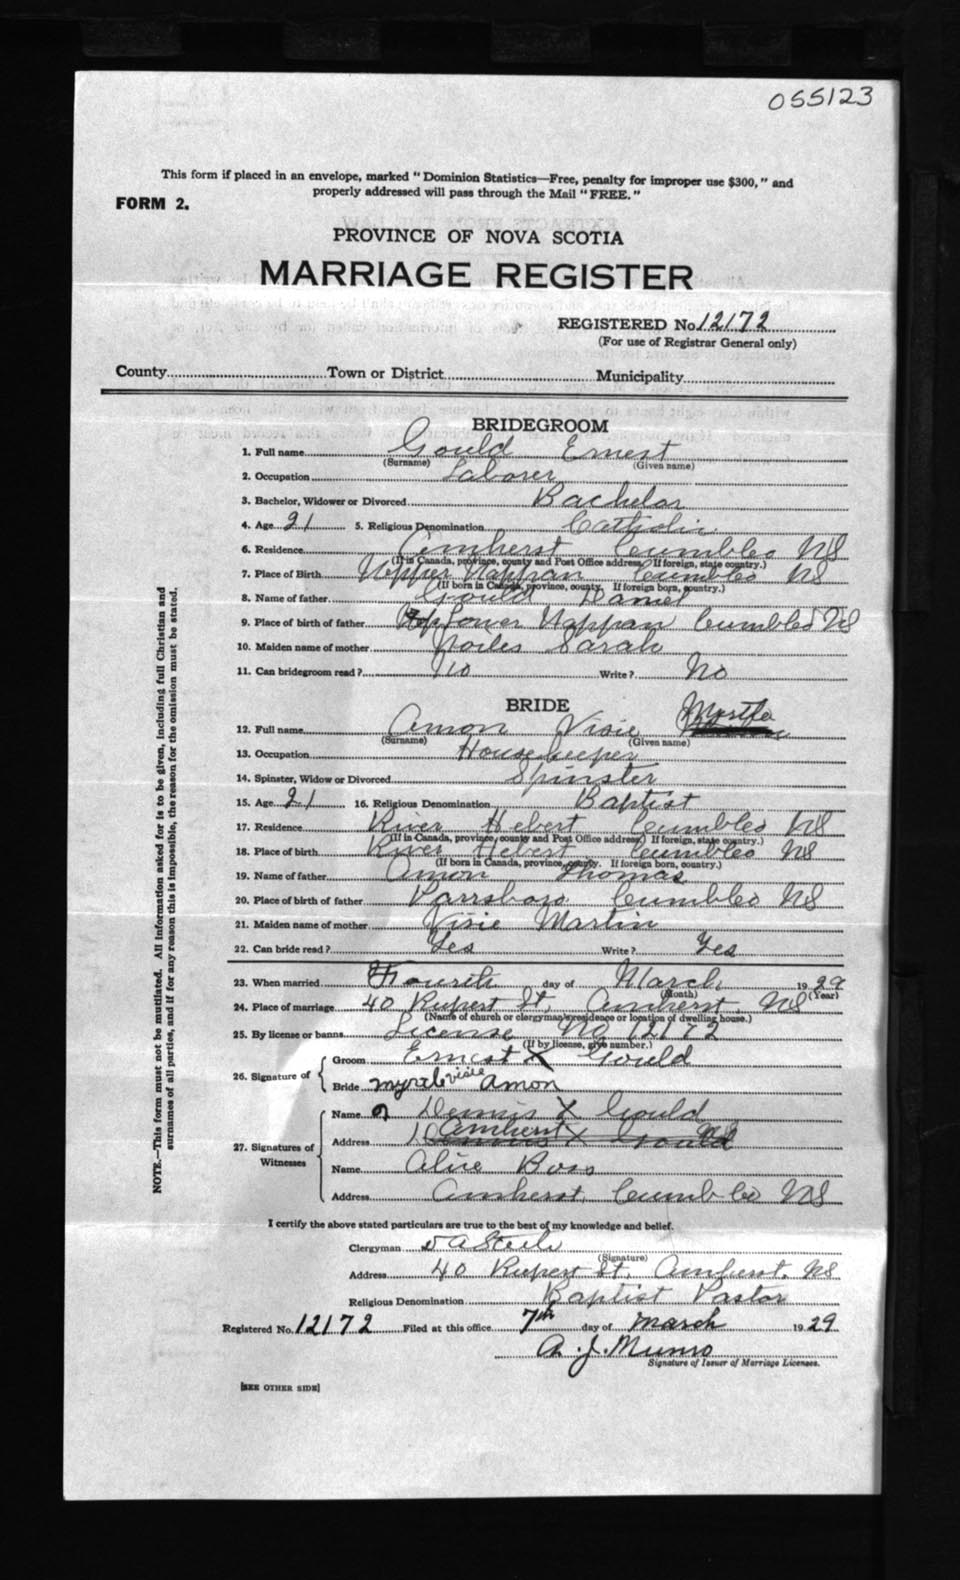 055123
This form if placed in an envelope, marked "Dominion Statistics—Free, penalty for improper use $300," and
properly addressed will pass through the Mail "FREE."
FORM 2.
PROVINCE OF NOVA SCOTIA
MARRIAGE REGISTER
REGISTERED No. 12172
(For use of Registrar General only)
County Town or District Municipality
BRIDEGROOM
1. Full name Gould Ernest
(Surname) (Given name)
2. Occupation Laborer
3. Bachelor, Widower or Divorced Bachelor
4. Age 21 5. Religious Denomination Catholic
6. Residence Amherst Cumbleo NS
(If in Canada, province, county and Post Office address. If foreign, state country.)
7. Place of Birth Upper Nappan Cumbleo NS
(If born in Canada, province, county. If foreign born, country.)
8. Name of father Gould Daniel
9. Place of birth of father Lower Nappan Cumbleo NS
10. Maiden name of mother Noiles Sarah
11. Can bridegroom read? No Write? No
BRIDE
12. Full name Amon Visie Myrtle
(Surname) (Given name)
13. Occupation Housekeeper
14. Spinster, Widow or Divorced Spinster
15. Age 21 16. Religious Denomination Baptist
17. Residence River Hebert Cumbleo NS
(If in Canada, province, county and Post Office address. If foreign, state country.)
18. Place of birth River Hebert Cumbleo NS
(If born in Canada, province, county. If foreign born, country.)
19. Name of father Amon Thomas
20. Place of birth of father Parrsboro Cumbleo NS
21. Maiden name of mother Visie Martin
22. Can bride read? Yes Write? Yes
23. When married Fourth day of March 1929
(Month) (Year)
24. Place of marriage 40 Rupert St, Amherst, NS
(Name of church or clergyman's residence or location of dwelling house.)
25. By license or banns License No 12172
(If by license, give number.)
26. Signature of
Groom Ernest X Gould
Bride Myrtle Visie Amon
27. Signatures of Witnesses
Name Dennis X Gould
Address Amherst NS
Name Alice Boss
Address Amherst, Cumbleo NS
I certify the above stated particulars are true to the best of my knowledge and belief.
Clergyman A Steele
(Signature)
Address 40 Rupert St, Amherst, NS
Religious Denomination Baptist Pastor
Registered No. 12172 Filed at this office 7th day of March 1929
A. J. Munro
Signature of Issuer of Marriage Licenses.
[SEE OTHER SIDE]
NOTE.—This form must not be mutilated. All information asked for is to be given, including full Christian and
surnames of all parties, and if for any reason this is impossible, the reason for the omission must be stated.